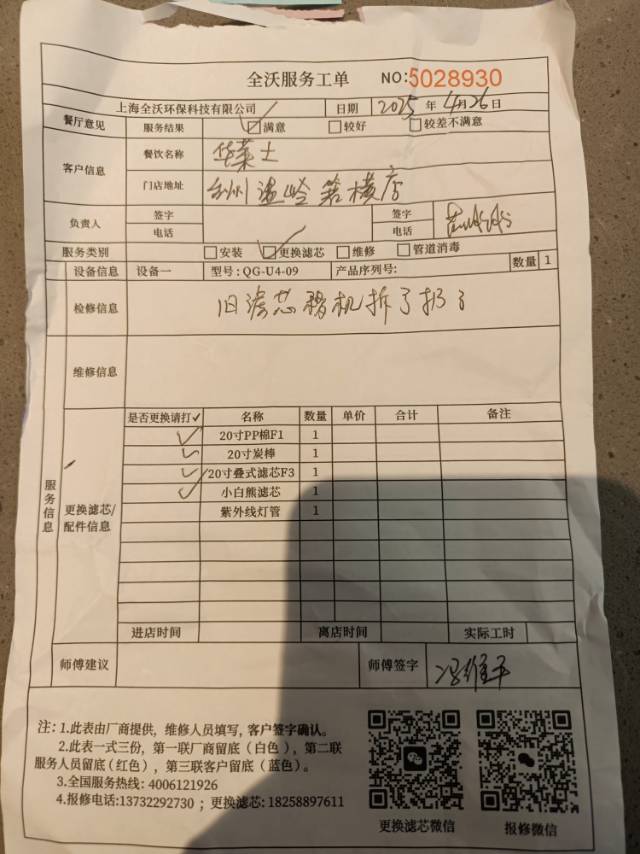 全沃服务工单 NO:5028930
上海全沃环保科技有限公司 日期 2025 年 4月26日
餐厅意见 服务结果 ☑满意 □较好 □较差不满意
客户信息 餐饮名称 华莱士
门店地址 台州温岭箬横店
负责人 签字 电话 签字 电话
服务类别 □安装 ☑更换滤芯 □维修 □管道消毒
设备信息 设备一 型号:QG-U4-09 产品序列号: 数量 1
检修信息 旧滤芯 机拆了扔了
维修信息
服务信息
更换滤芯/配件信息
是否更换请打✓ 名称 数量 单价 合计 备注
✓ 20寸PP棉F1 1
✓ 20寸炭棒 1
✓ 20寸叠式滤芯F3 1
✓ 小白熊滤芯 1
紫外线灯管 1
进店时间 离店时间 实际工时
师傅建议 师傅签字 冯维平
注:1.此表由厂商提供，维修人员填写，客户签字确认。
2.此表一式三份，第一联厂商留底（白色），第二联
服务人员留底(红色），第三联客户留底（蓝色）。
3.全国服务热线: 4006121926
4.报修电话:13732292730 ; 更换滤芯: 18258897611
更换滤芯微信 报修微信